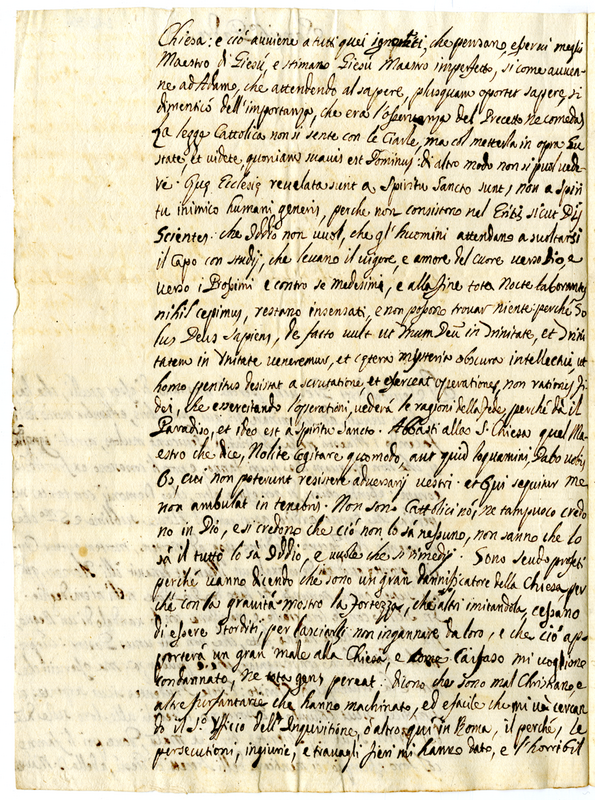 Chiesa: e ciò avviene a tutti quei ignoranti, che pensano esservi megli
Maestro di Giesù, e stimano Giesù Maestro imperfetto, si come avven-
ne ad Adamo, che attendendo al sapere, plusquam oportet sapere, si
dimenticò dell'importanza, che era l'osservanza del Precetto ne comedas
La legge Cattolica non si sente con le Ciarle, ma col metterla in opra Gu
state, et videte quoniam suavis est Dominus: di altro modo non si puol vede
re. Quę Ecclesię revelata sunt a Spiritu Sancto sunt, non a spiri
tu inimico humani generis, perche non consistono nel Eritis sicut Dij
Scientes: che Iddio non vuol, che gl'huomini attendano a svoltarsi
il Capo con studij, che levano il vigore, e amore del Cuore verso Dio, e
verso i Possimi e contro se medesimi, e alla fine tota Nocte laborantes
nihil cepimus, restano insensati, e non possono trovar niente: perche So
lus Deus Sapiens, de facto vult ut Unum Deum in Trinitate, et Trini
tatem in Unitate veneremur, et cętera mysteria obscura intellectui, ut
homo penitus desistat a scrutatione, et exerceat operationes, non rationes Fi
dei, che essercitando l'operationi, vederà le ragioni della Fede, perche dà il
Paradiso, et ideo est a spiritu Sancto. Abbasti alla S. Chiesa quel Ma
estro che dice, Nolite cogitare quomodo, aut quid loquamini, Dabo vobis
Os, cui non poterunt resistere adversarij vestri. et Qui sequitur me
non ambulat in tenebris. Non sono Cattolici nò, ne tampuoco credo
no in Dio, e si credono che ciò non lo sà nessuno, non sanno che lo
sà il tutto lo sà Iddio, e vuole che si rimedij. Sono pseudo profeti
perche vanno dicendo che sono un gran dannificatore della Chiesa per
che con la gravità mostro la Fortezza, che altri imitandola, cessano
di essere Storditi, per lasciarsi non ingannare da loro, e che ciò ap
porterà un gran male alla Chiesa, e come Caifasso mi vogliono
condannato, Ne tota gens pereat: dicono che sono mal Christiano e
altre furfantarie che hanno machinato, ed è facile che mi va cercan
do il S.to Ufficio dell'Inquisitione, ò altro qui in Roma, il perché, le
persecutioni, ingiurie, e travagli fieri mi hanno dato, e l'horribil